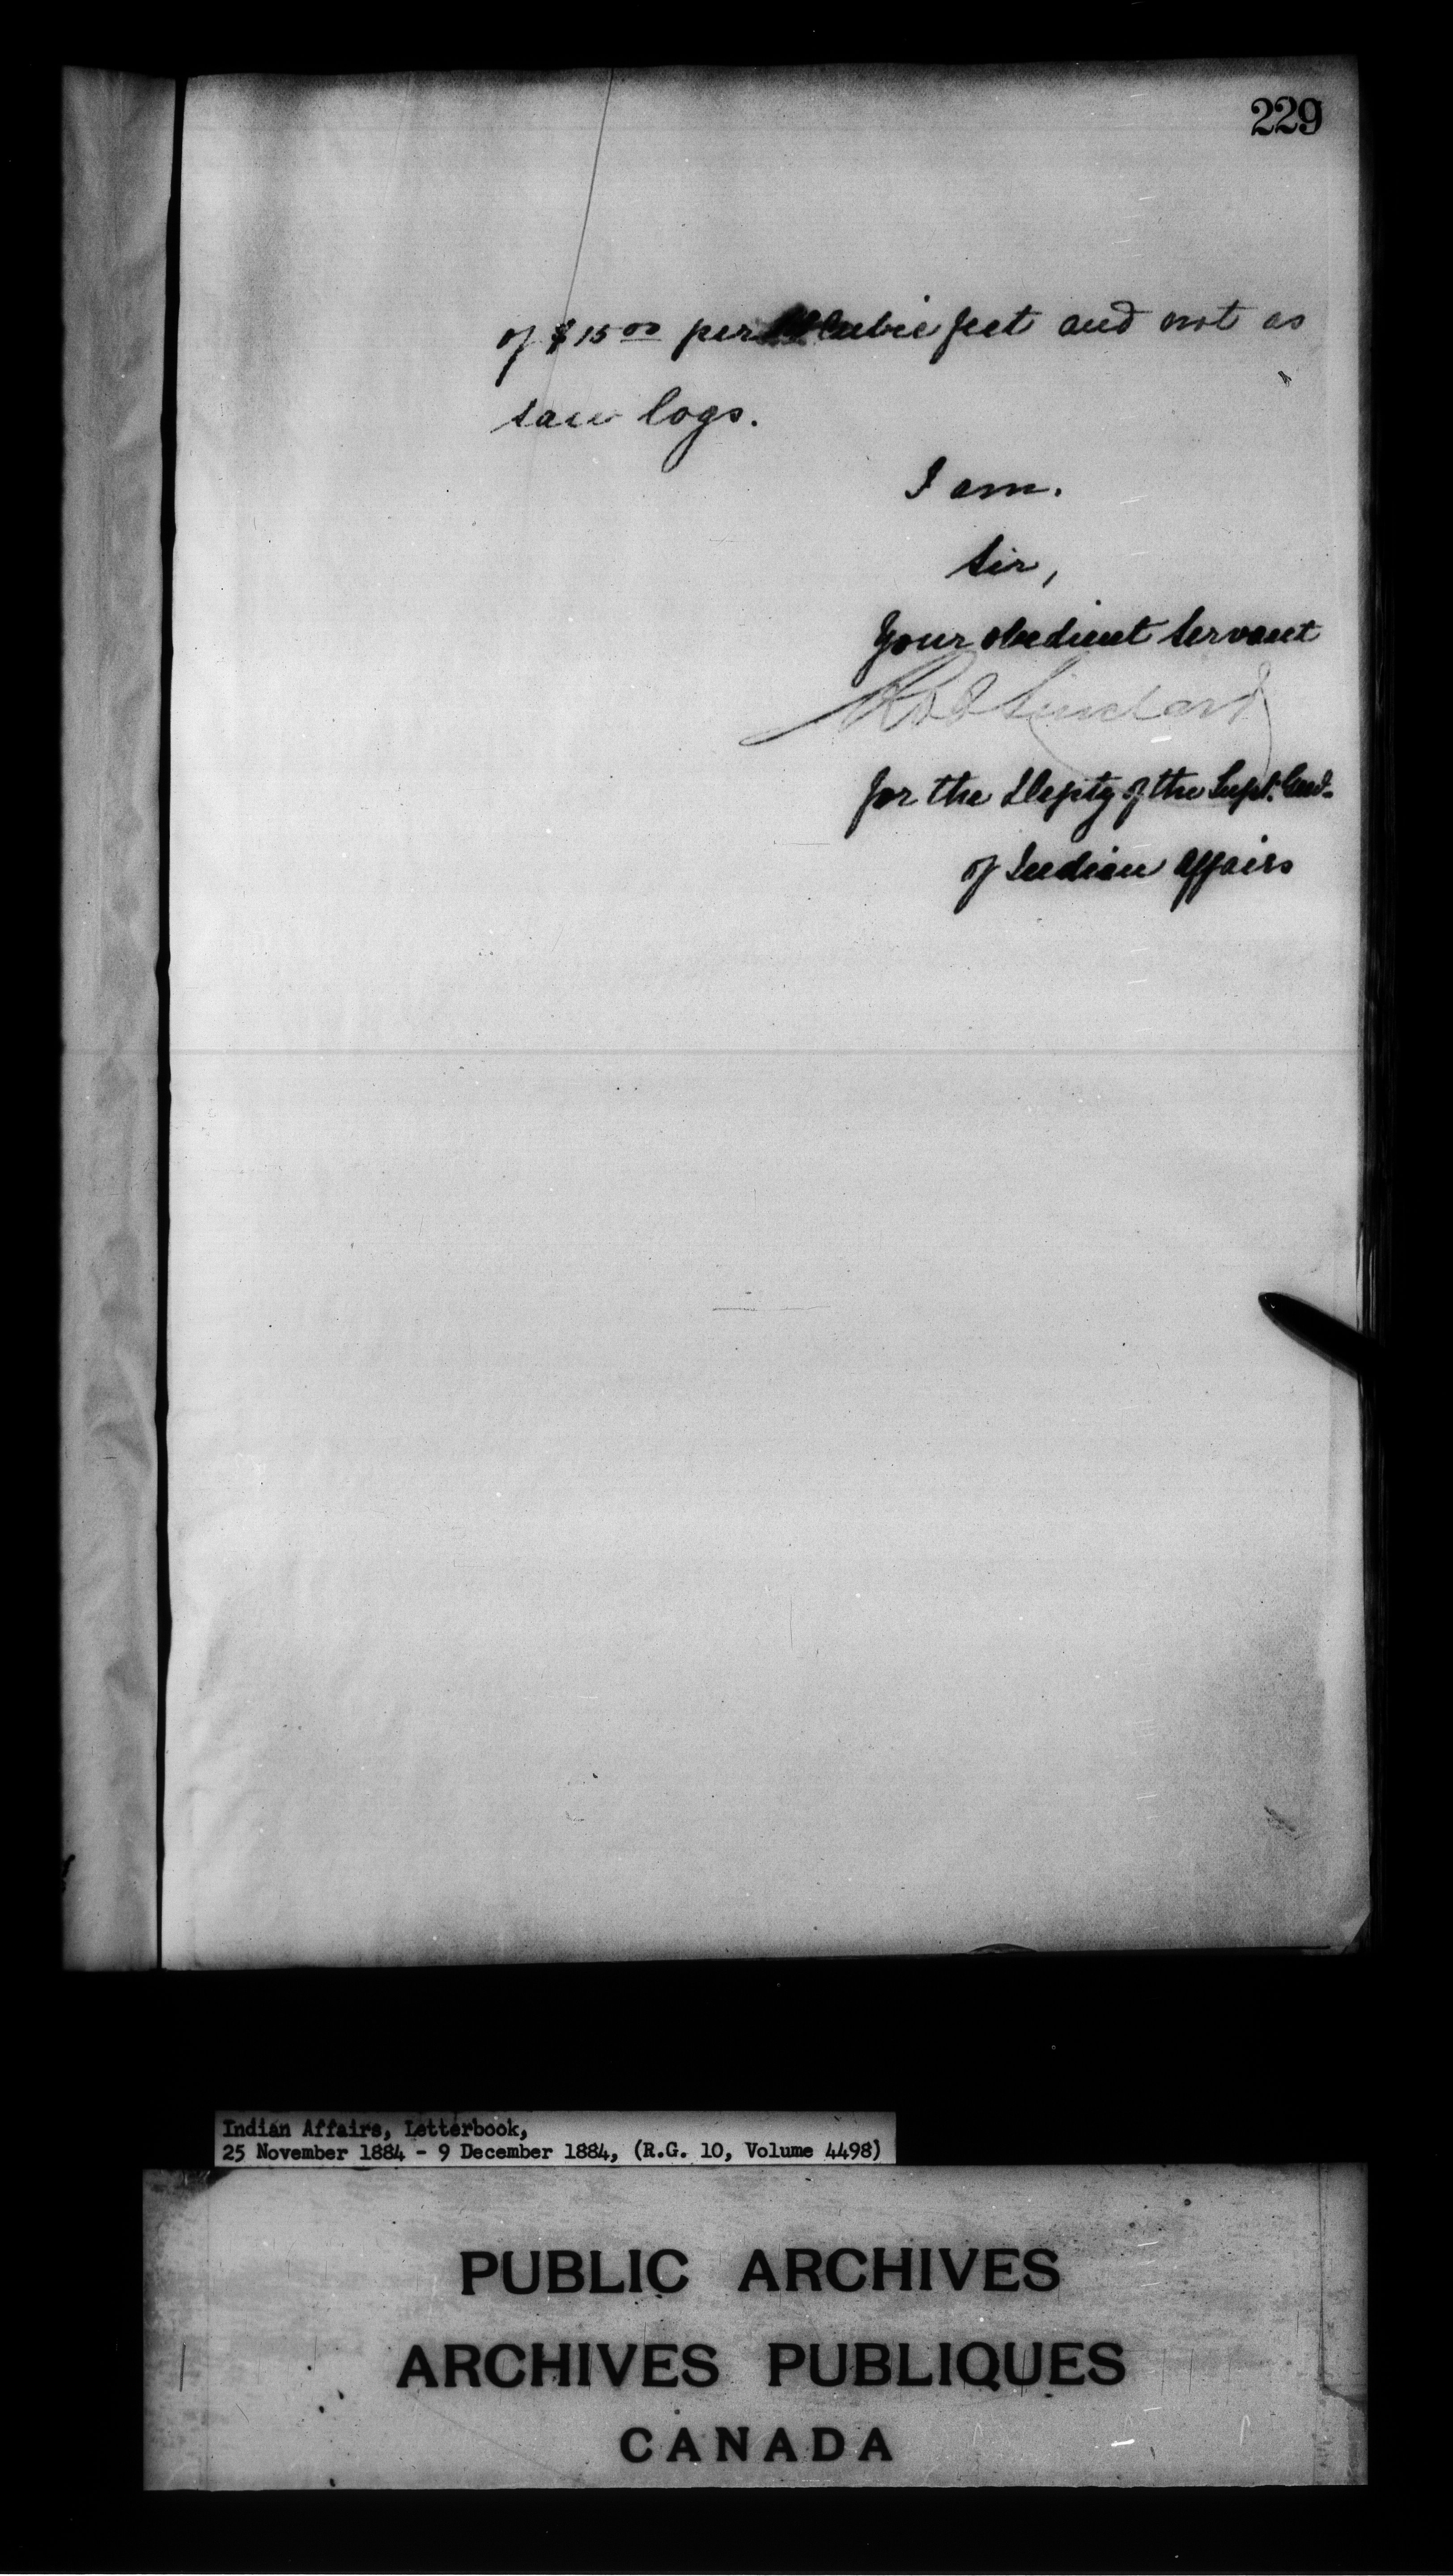 229
of $15.00 per M cubic feet and not as
saw logs.
I am.
Sir,
Your obedient Servant
for the Depty of the Supt. Genl.
of Indian Affairs
Indian Affairs, Letterbook,
25 November 1884 - 9 December 1884, (R.G. 10, Volume 4498)
PUBLIC ARCHIVES
ARCHIVES PUBLIQUES
CANADA